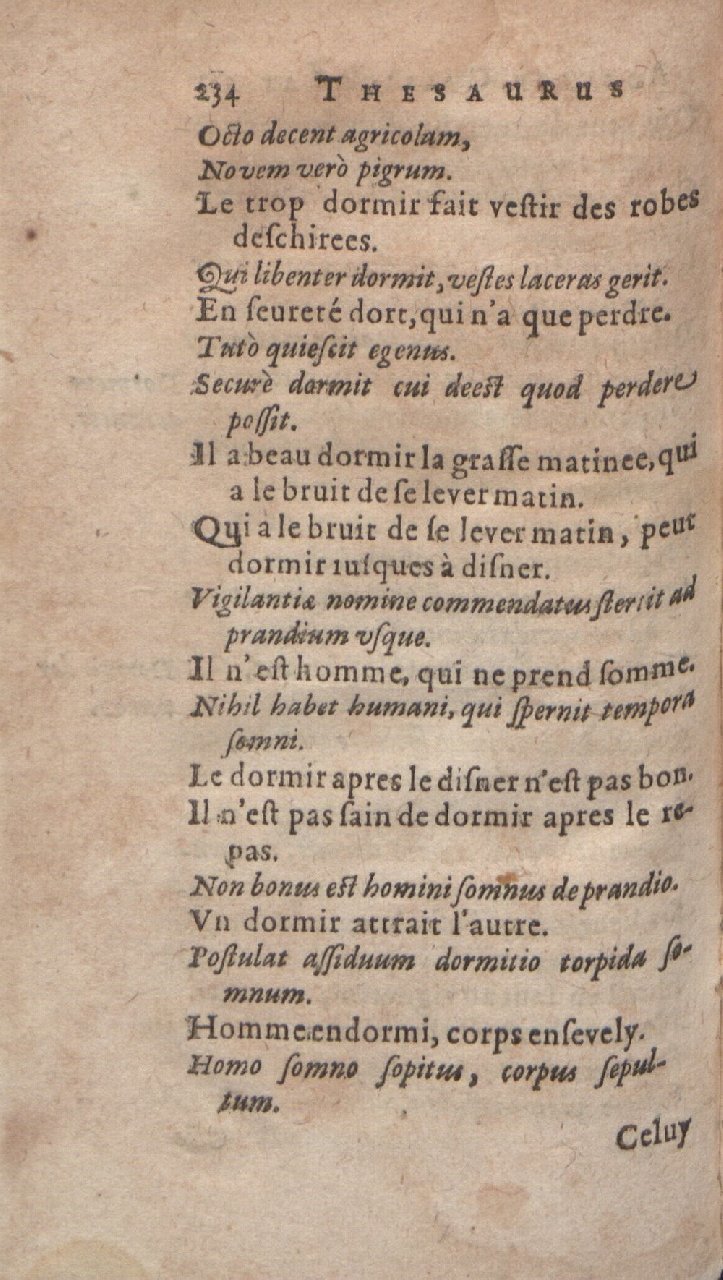 234 THESAURUS
Octo decent agricolam,
Novem verò pigrum.
Le trop dormir fait veſtir des robes
deſchirees.
Qui libenter dormit, veſtes laceras gerit.
En ſeureté dort, qui n'a que perdre.
Tutò quieſcit egenus.
Securè dormit cui deest quod perdere
poſſit.
Il a beau dormir la graſſe matinee, qui
a le bruit de ſe lever matin.
Qui a le bruit de ſe lever matin, peut
dormir iuſques à diſner.
Vigilantiæ nomine commendatus ſtertit ad
prandium vſque.
Il n'eſt homme, qui ne prend ſomme.
Nihil habet humani, qui ſpernit tempora
ſomni.
Le dormir apres le diſner n'eſt pas bon.
Il n'eſt pas ſain de dormir apres le re-
pas.
Non bonus est homini ſomnus de prandio.
Vn dormir attrait l'autre.
Poſtulat aſſiduum dormitio torpida ſo-
mnum.
Homme endormi, corps enſevely.
Homo ſomno ſopitus, corpus ſepul-
tum.
Celuy